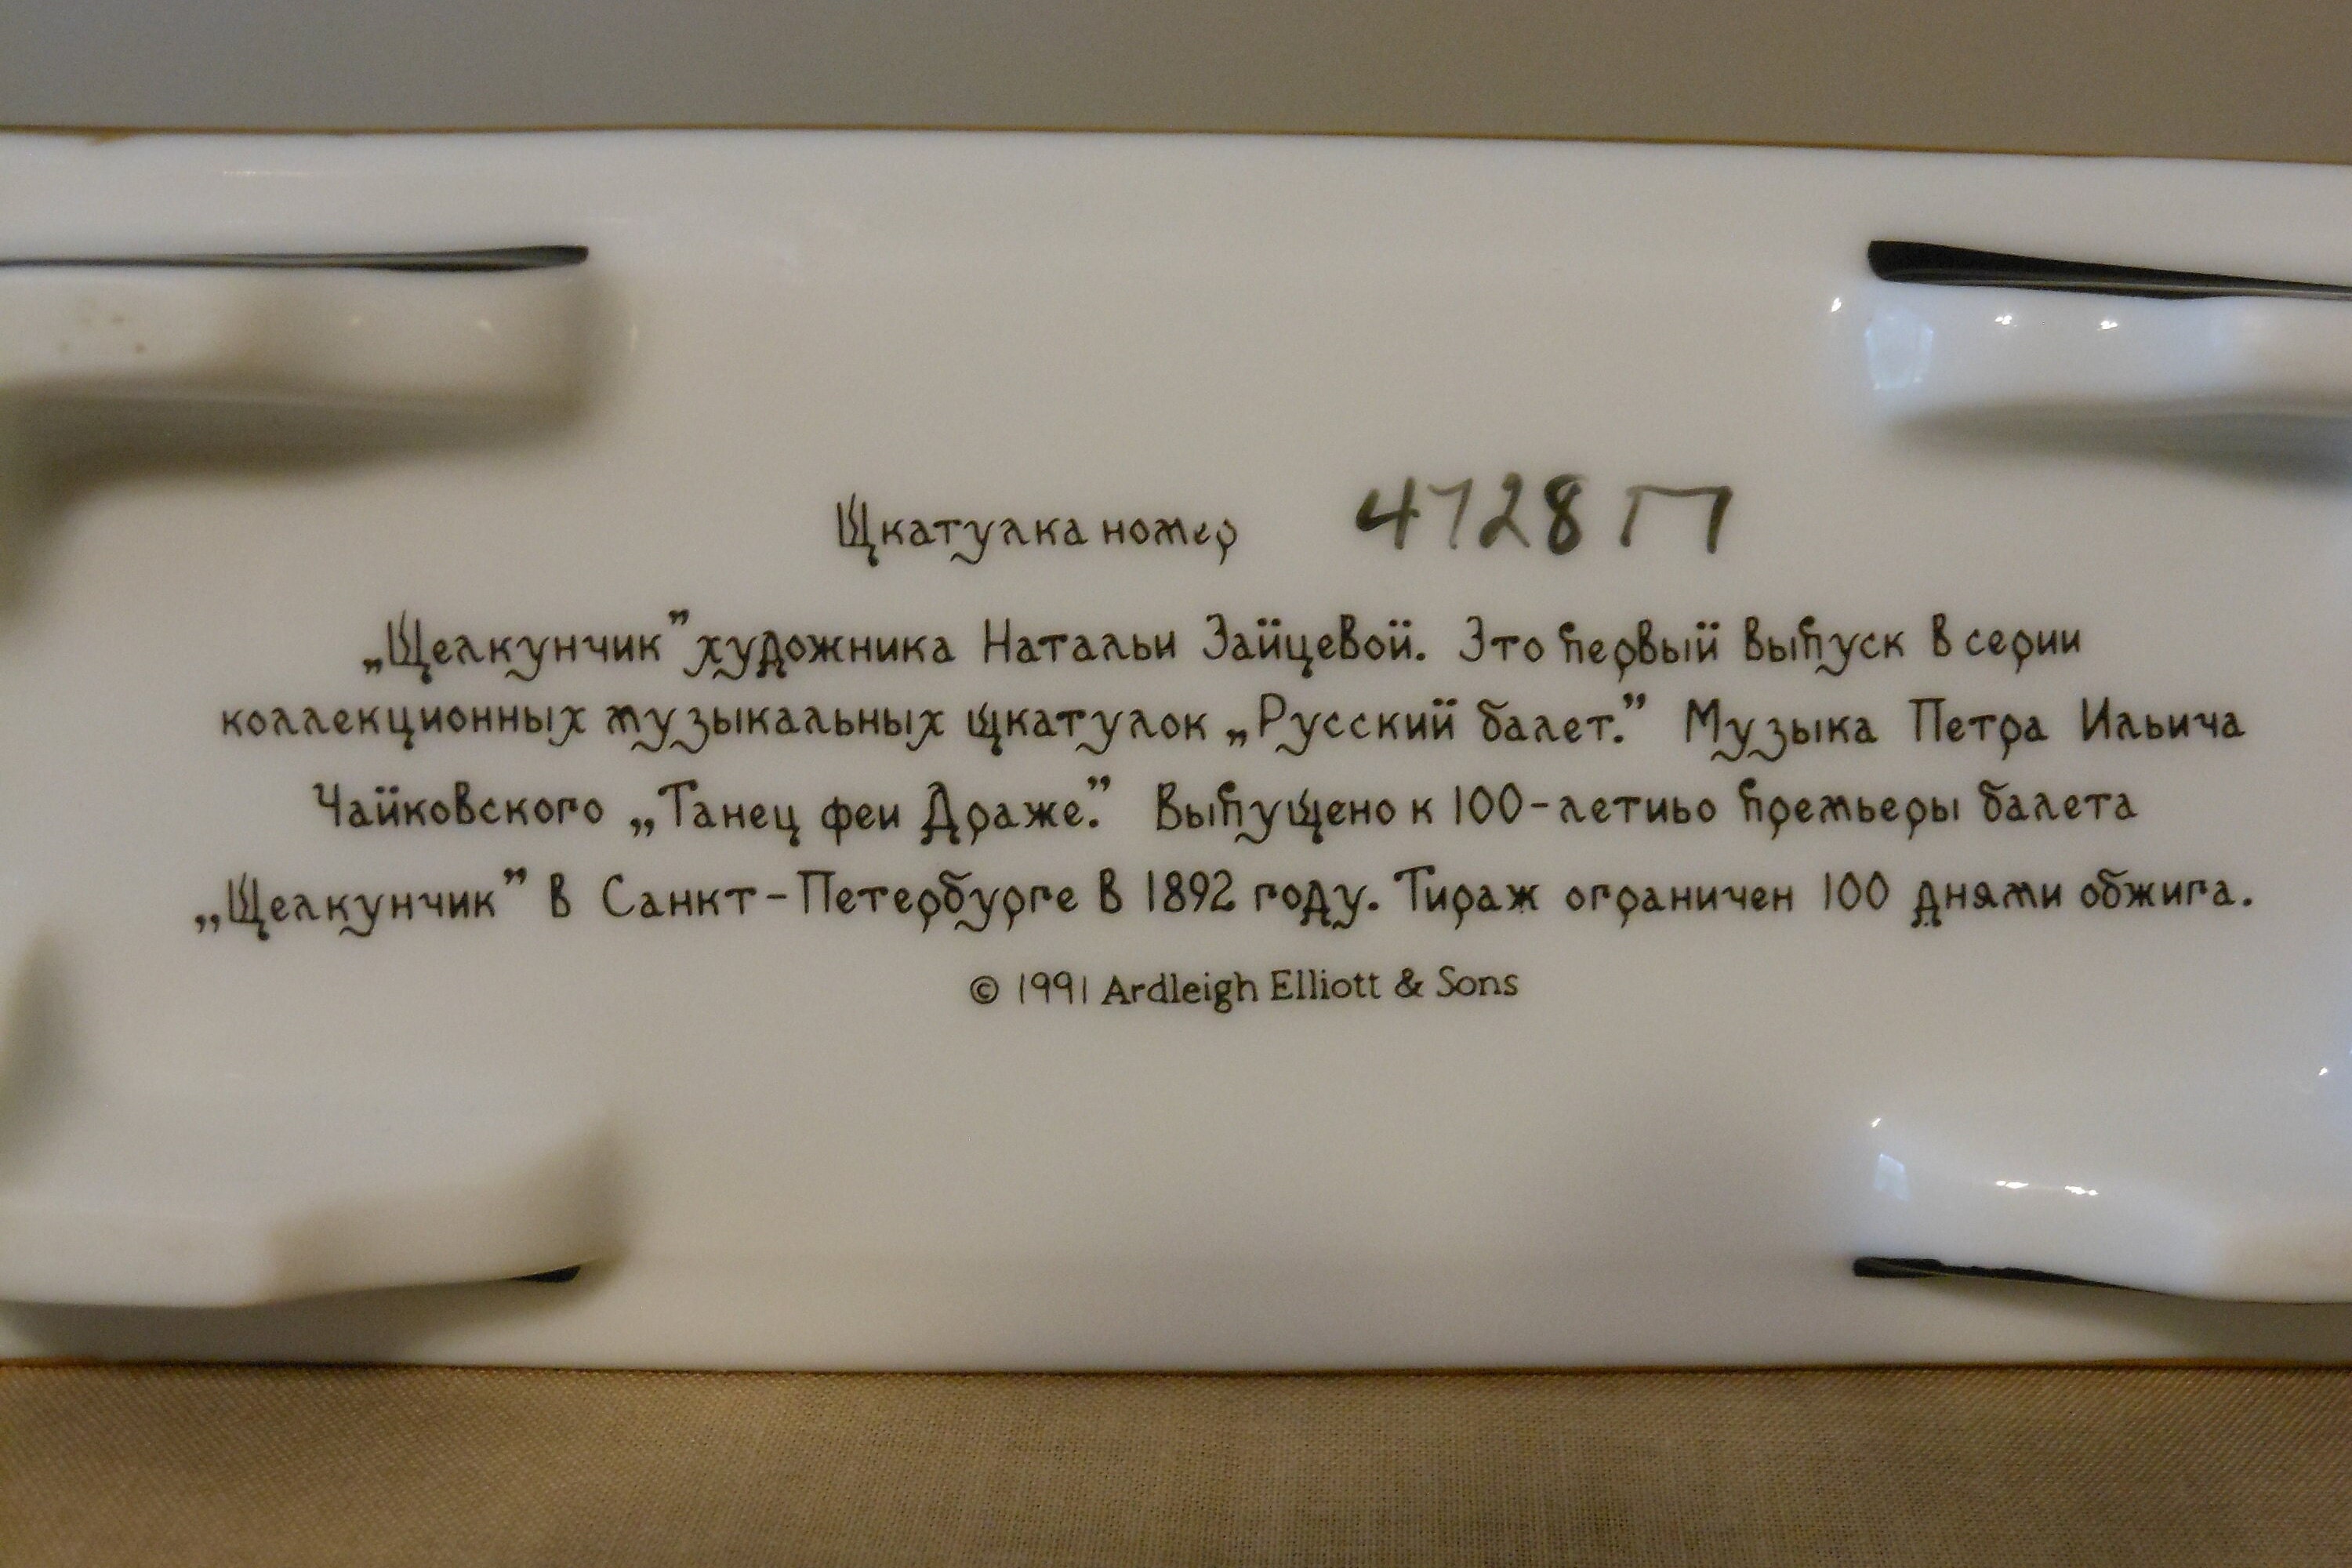 Щкатулка номер 4728 П
„Щелкунчик” художника Натальи Зайцевой. Это первый выпуск в серии
коллекционных музыкальных щкатулок „Русский балет.” Музыка Петра Ильича
Чайковского „Танец феи Драже.” Выпущено к 100-летиьо премьеры балета
„Щелкунчик” в Санкт-Петербурге в 1892 году. Тираж ограничен 100 днями обжига.
© 1991 Ardleigh Elliott & Sons